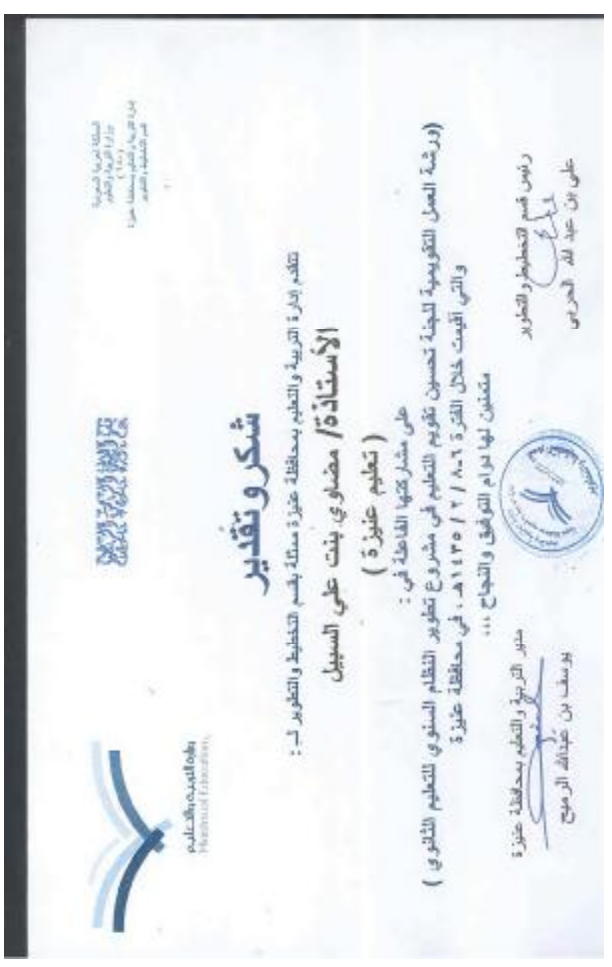 المملكة العربية السعودية
وزارة التربية والتعليم
( ٢٨٠ )
إدارة التربية والتعليم بمحافظة عنيزة
قسم التخطيط والتطوير
وزارة التربية والتعليم
Ministry of Education
شكر و تقدير
تتقدم إدارة التربية والتعليم بمحافظة عنيزة ممثلة بقسم التخطيط والتطوير لـ :
الأستاذة/ مضاوي بنت علي السبيل
( تعليم عنيزة )
على مشاركتها الفاعلة في :
(ورشة العمل التقويمية للجنة تحسين تقويم التعليم في مشروع تطوير النظام السنوي للتعليم الثانوي )
والتي أقيمت خلال الفترة ٦-٨ / ٢ / ١٤٣٥هـ ، في محافظة عنيزة
متمنين لها دوام التوفيق والنجاح ،،،
رئيس قسم التخطيط والتطوير
علي بن عبد لله الحربي
مدير التربية والتعليم بمحافظة عنيزة
يوسف بن عبدالله الرميح